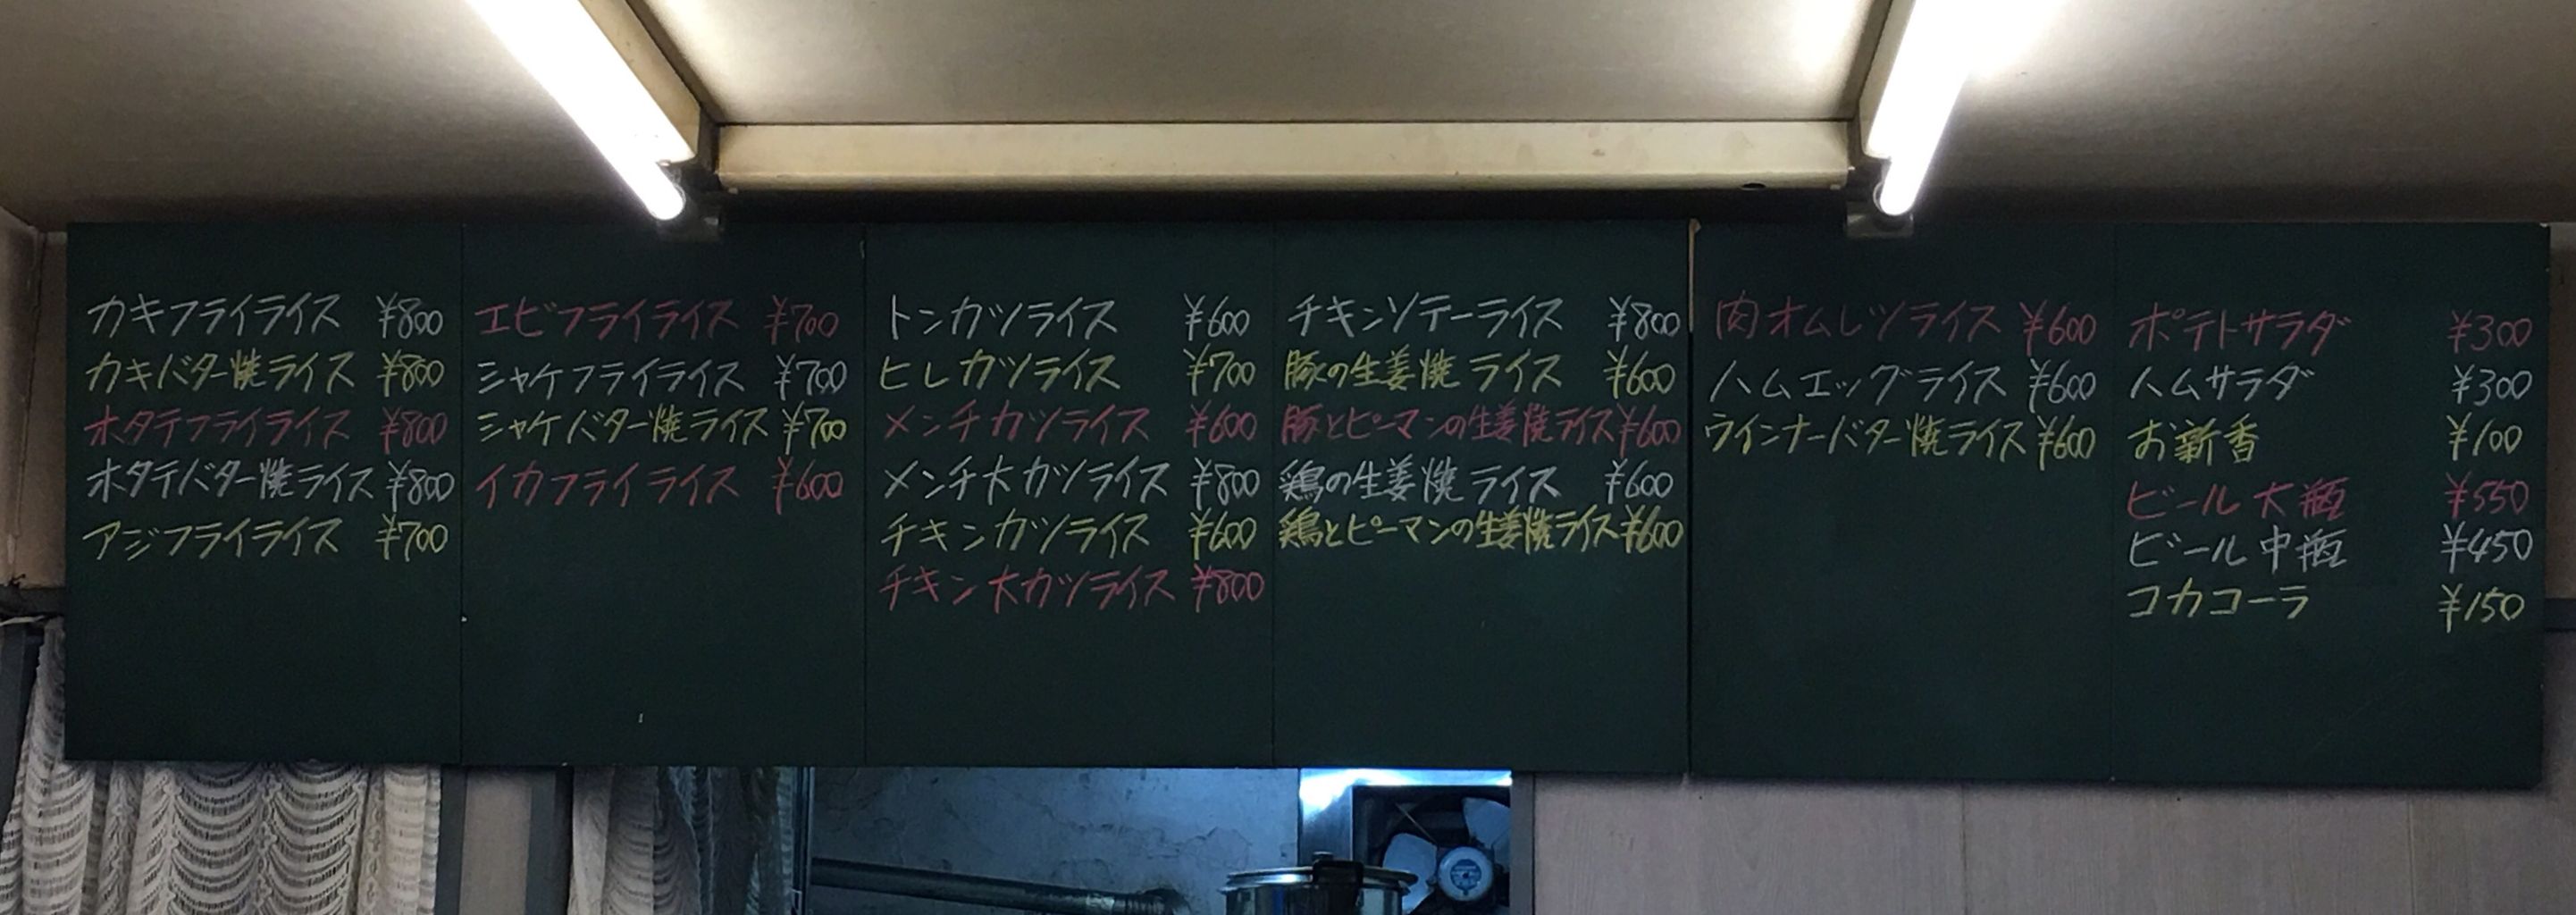 カキフライライス ¥800
カキバター焼ライス ¥800
ホタテフライライス ¥800
ホタテバター焼ライス ¥800
アジフライライス ¥700
エビフライライス ¥700
シャケフライライス ¥700
シャケバター焼ライス ¥700
イカフライライス ¥600
トンカツライス ¥600
ヒレカツライス ¥700
メンチカツライス ¥600
メンチ大カツライス ¥800
チキンカツライス ¥600
チキン大カツライス ¥800
チキンソテーライス ¥800
豚の生姜焼ライス ¥600
豚とピーマンの生姜焼ライス ¥600
鶏の生姜焼ライス ¥600
鶏とピーマンの生姜焼ライス ¥600
肉オムレツライス ¥600
ハムエッグライス ¥600
ウインナーバター焼ライス ¥600
ポテトサラダ ¥300
ハムサラダ ¥300
お新香 ¥100
ビール大瓶 ¥550
ビール中瓶 ¥450
コカコーラ ¥150